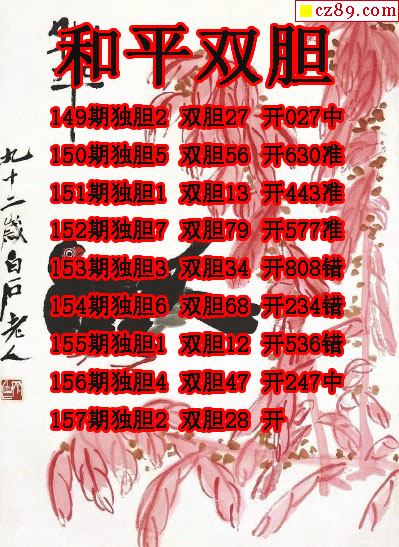 cz89.com
和平双胆
149期独胆2 双胆27 开027中
150期独胆5 双胆56 开630准
151期独胆1 双胆13 开443准
152期独胆7 双胆79 开577准
153期独胆3 双胆34 开808错
154期独胆6 双胆68 开234错
155期独胆1 双胆12 开536错
156期独胆4 双胆47 开247中
157期独胆2 双胆28 开
九十二岁白石老人